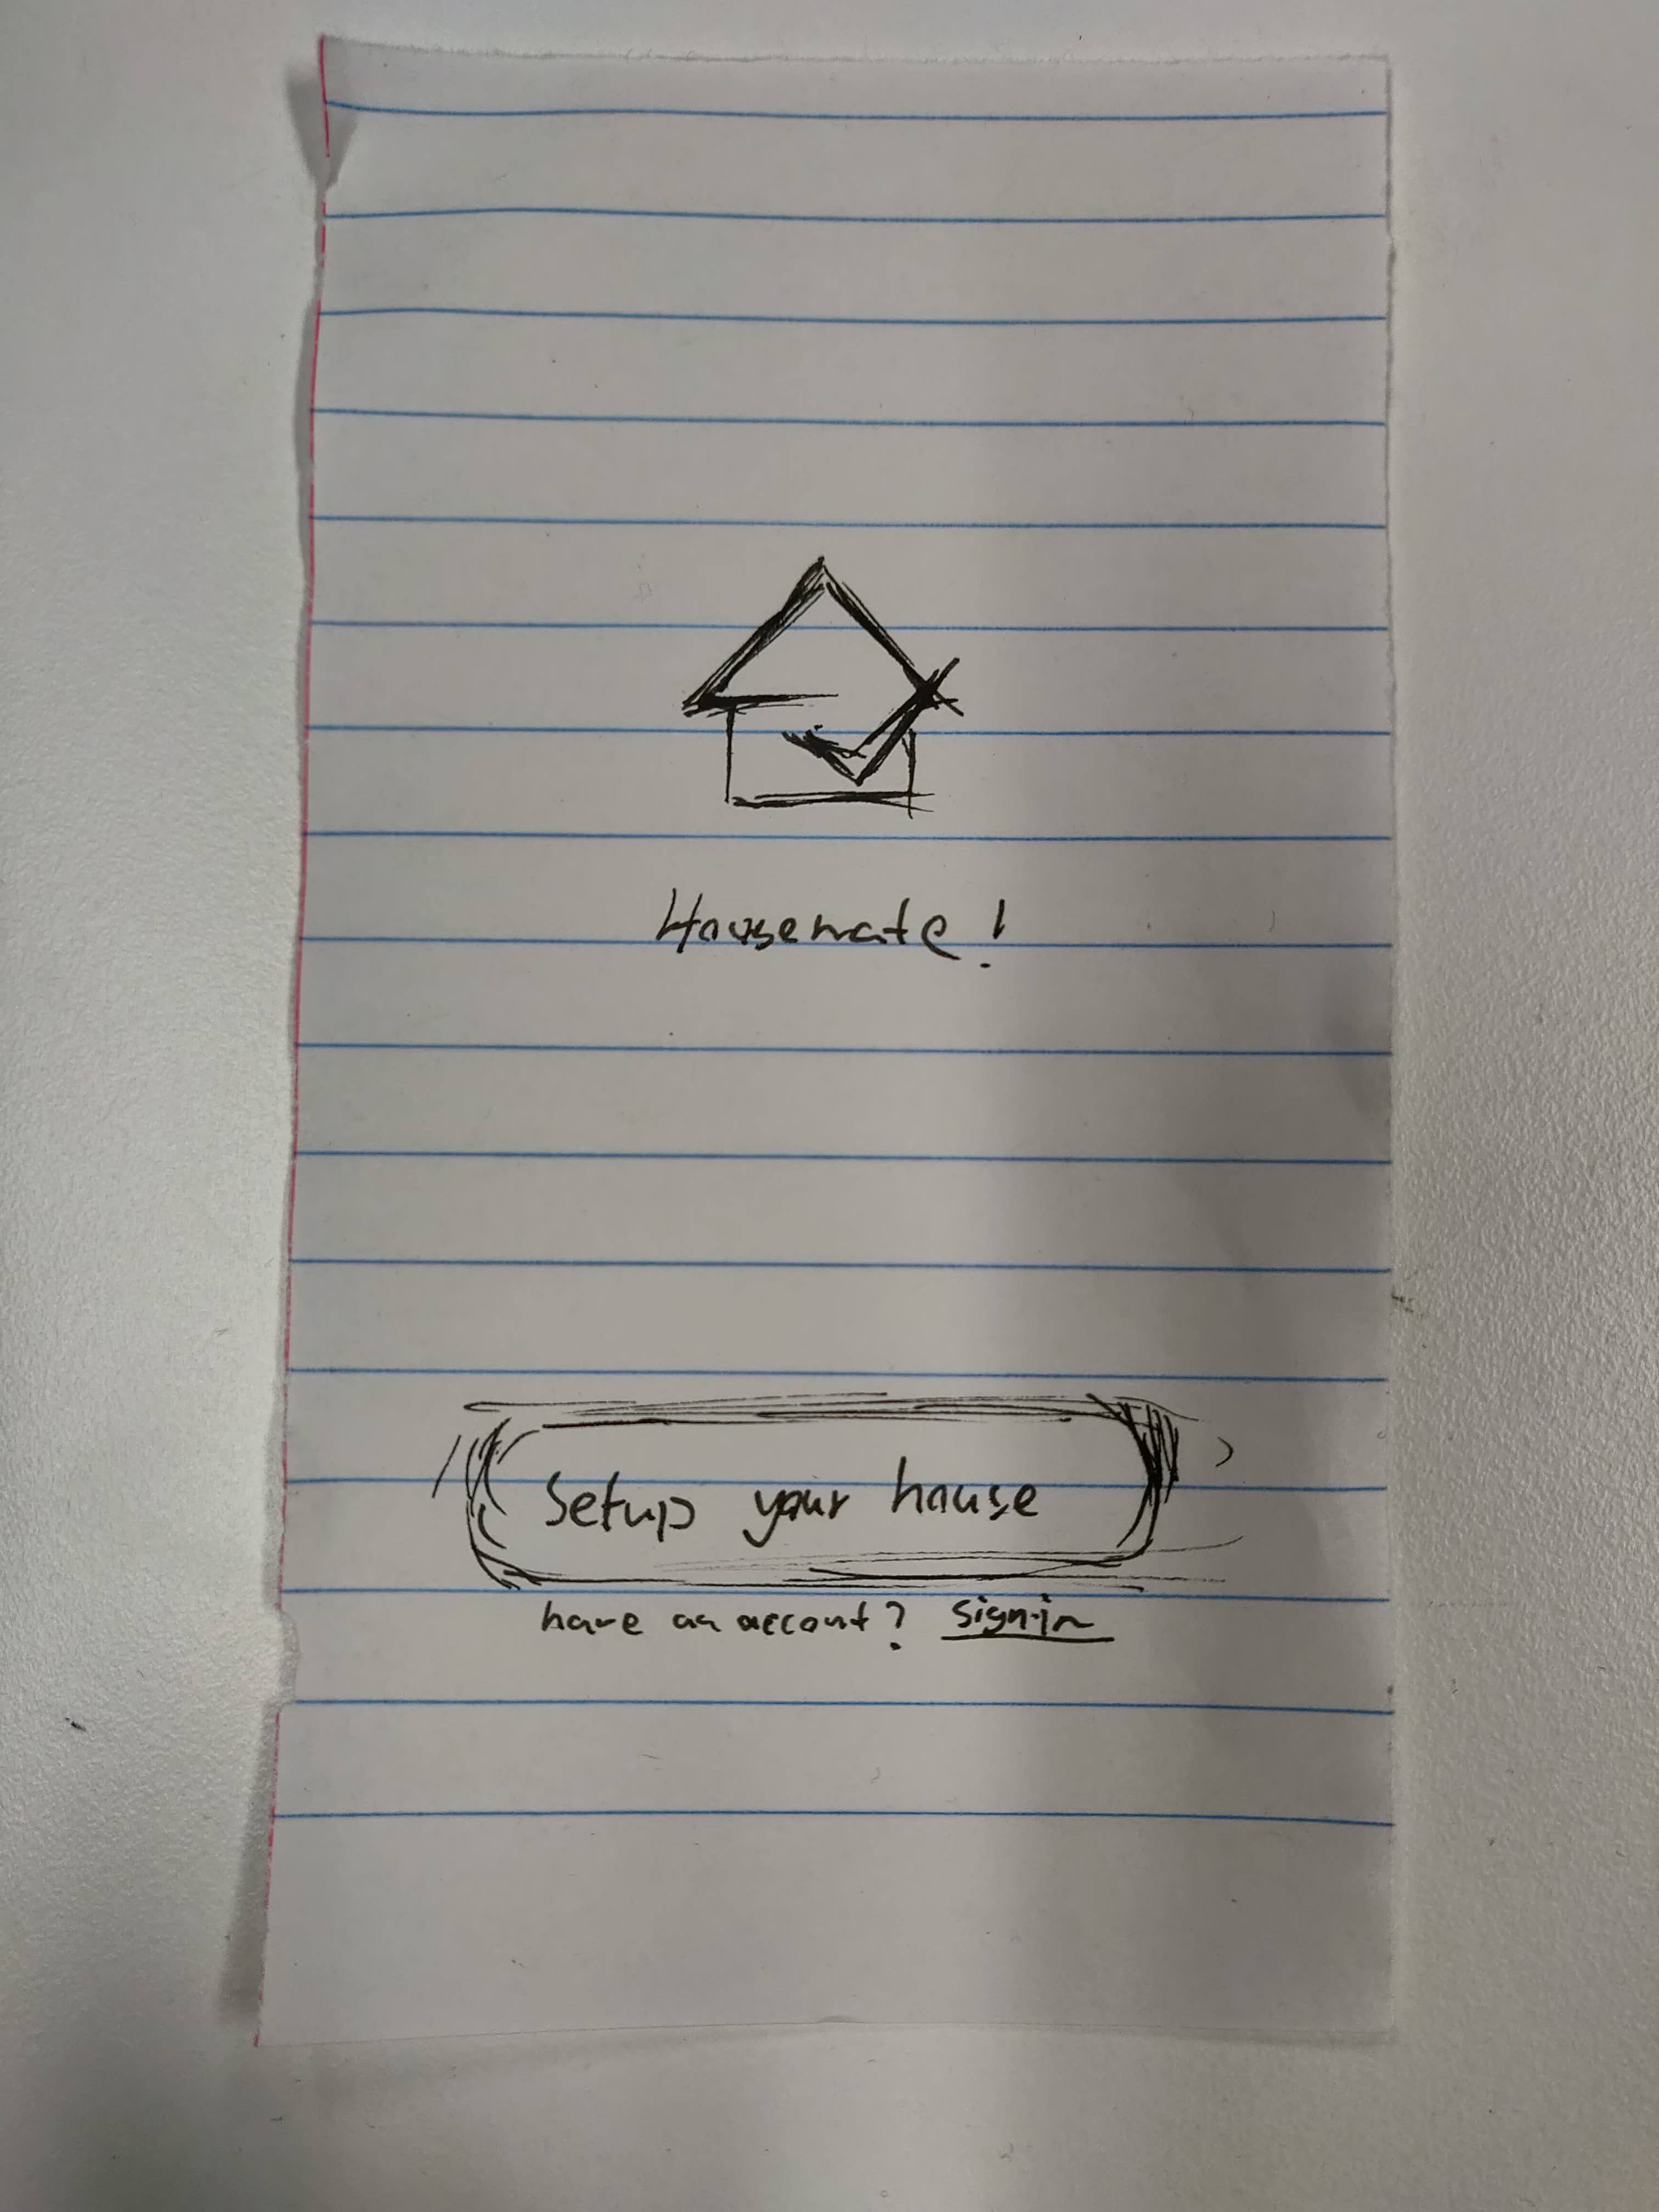 Housemate!
Setup your house
have an account? sign-in